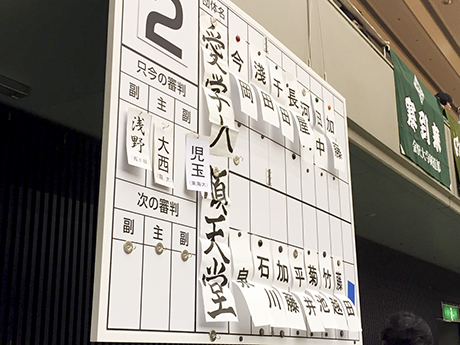 2
団体名
只今の審判
副 主 副
浅野
大西
児玉
次の審判
副 主 副
愛学大
今岡
淺田
千田
加藤
順天堂
泉
石川
加藤
平井
菊池
竹越
藤田